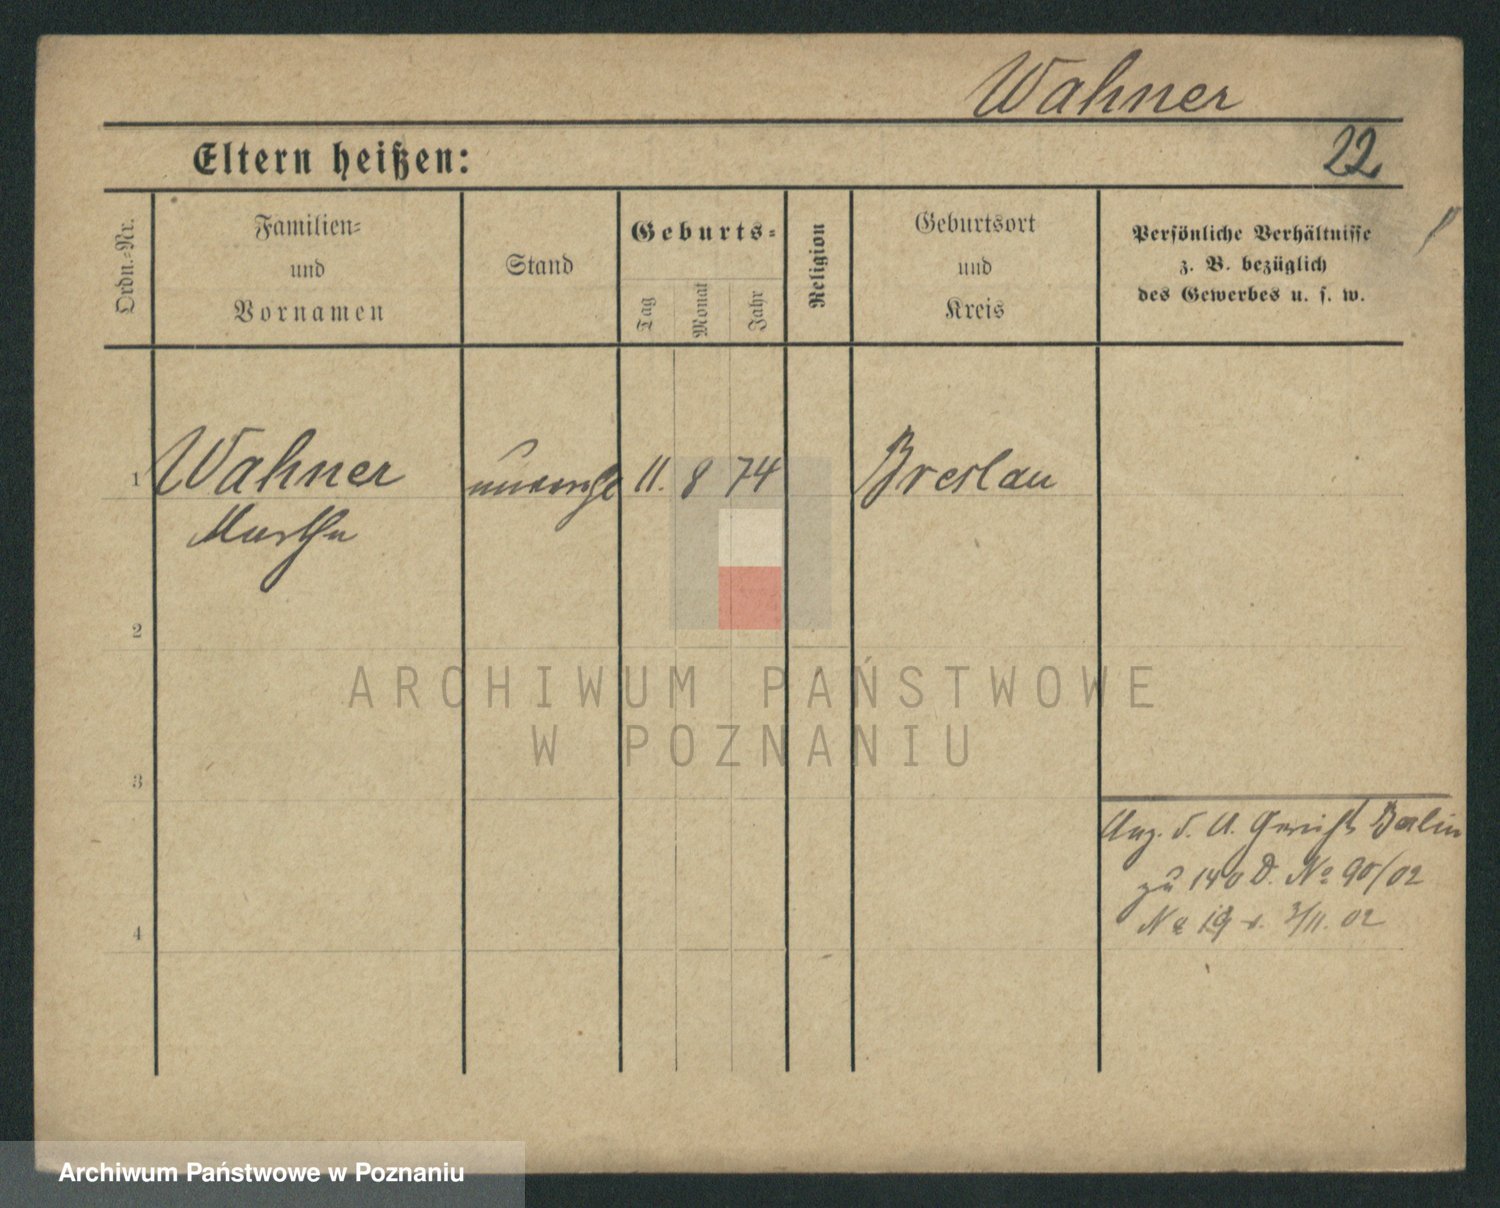 Wahner
Eltern heißen:
22
Ordn.-Nr.
Familien-
und
Vornamen
Stand
Geburts-
Tag
Monat
Jahr
Religion
Geburtsort
und
Kreis
Persönliche Verhältnisse
z. B. bezüglich
des Gewerbes u. s. w.
1 Wahner unverehl 11. 8 74 Breslau
Martha
2
ARCHIWUM PAŃSTWOWE
W POZNANIU
3
Anz. d. A. Gerichts Berlin
zu 140 D. No 90/02
No 19 v. 3/11. 02
4
Archiwum Państwowe w Poznaniu